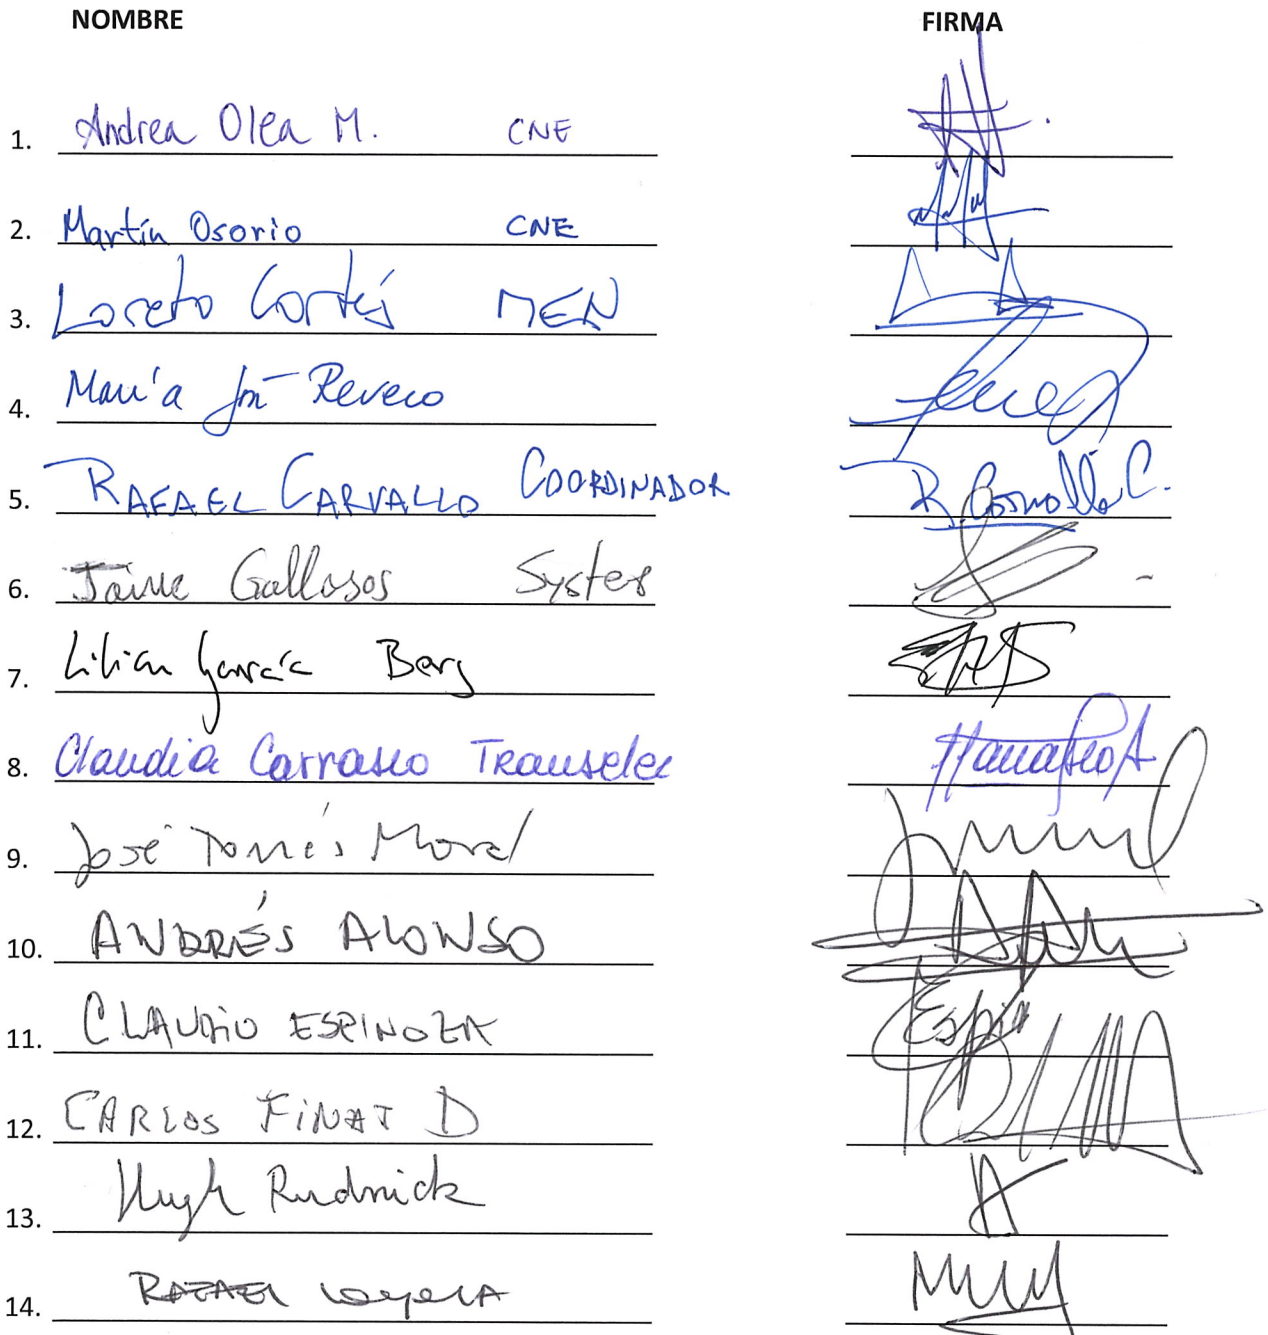 NOMBRE FIRMA
1. Andrea Olea M. CNE
2. Martín Osorio CNE
3. Loreto Cortés MEN
4. María José Reveco
5. RAFAEL CARVALLO COORDINADOR R. Carvallo C.
6. Jaime Gallosos Systep
7. Lilian García Berg
8. Claudia Carrasco Transelec
9. José Tomás Morel
10. ANDRÉS ALONSO
11. CLAUDIO ESPINOZA
12. CARLOS FINAT D
13. Hugh Rudnick
14. RAFAEL Loyola